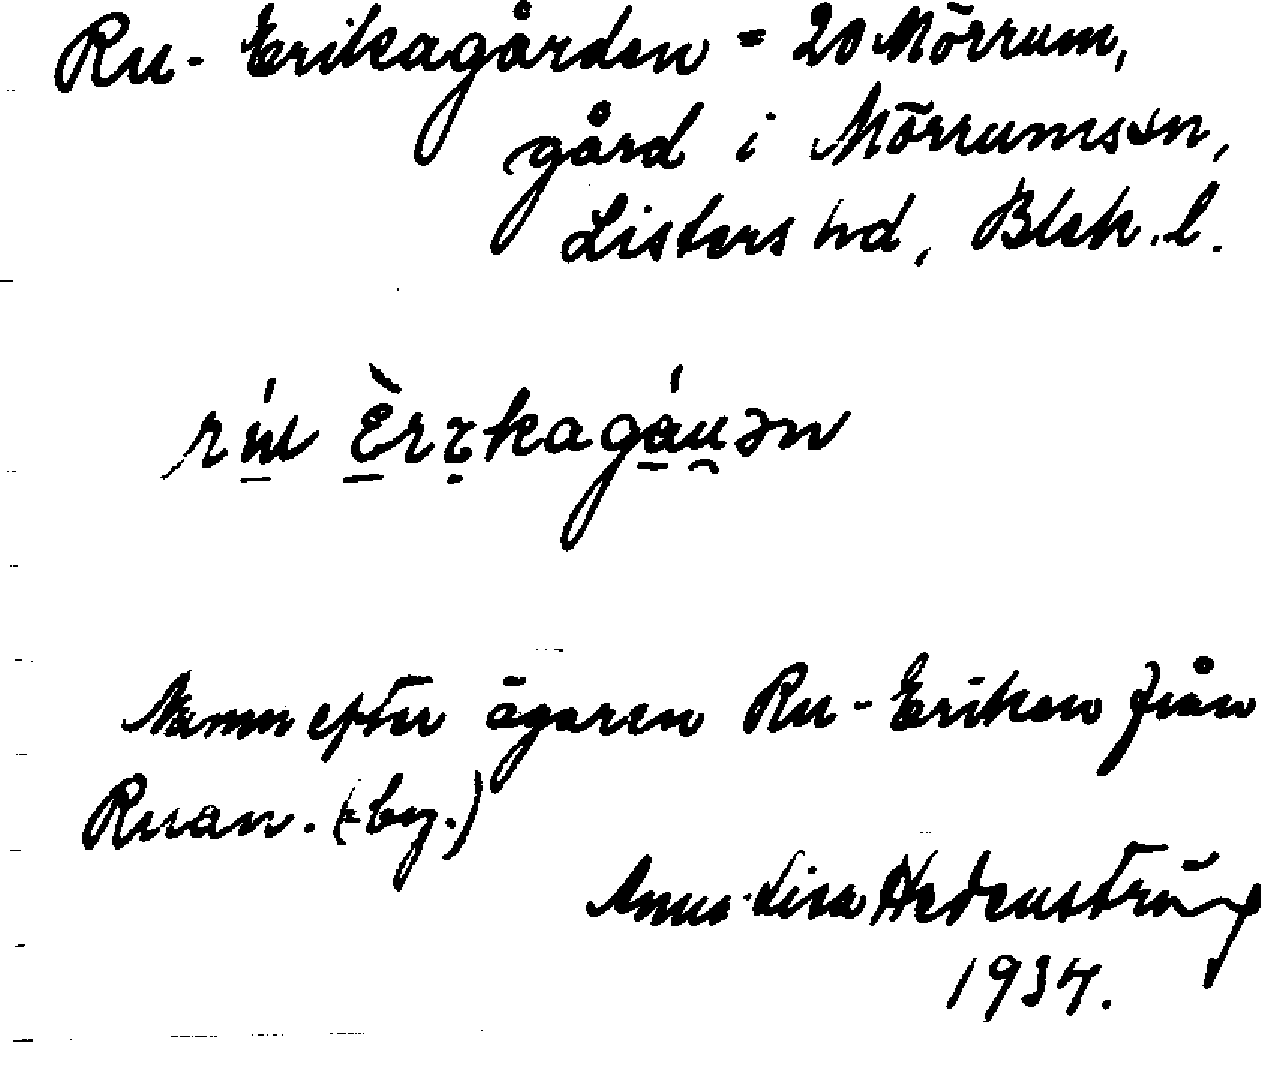 Ru-Erikagården = 20 Mörrum,
gård i Mörrumssn,
Listers hd, Blek. l.
Namn efter ägaren Ru-Eriken från
Ruan. (= by.)
Anna-Lisa Hedenström
1934.